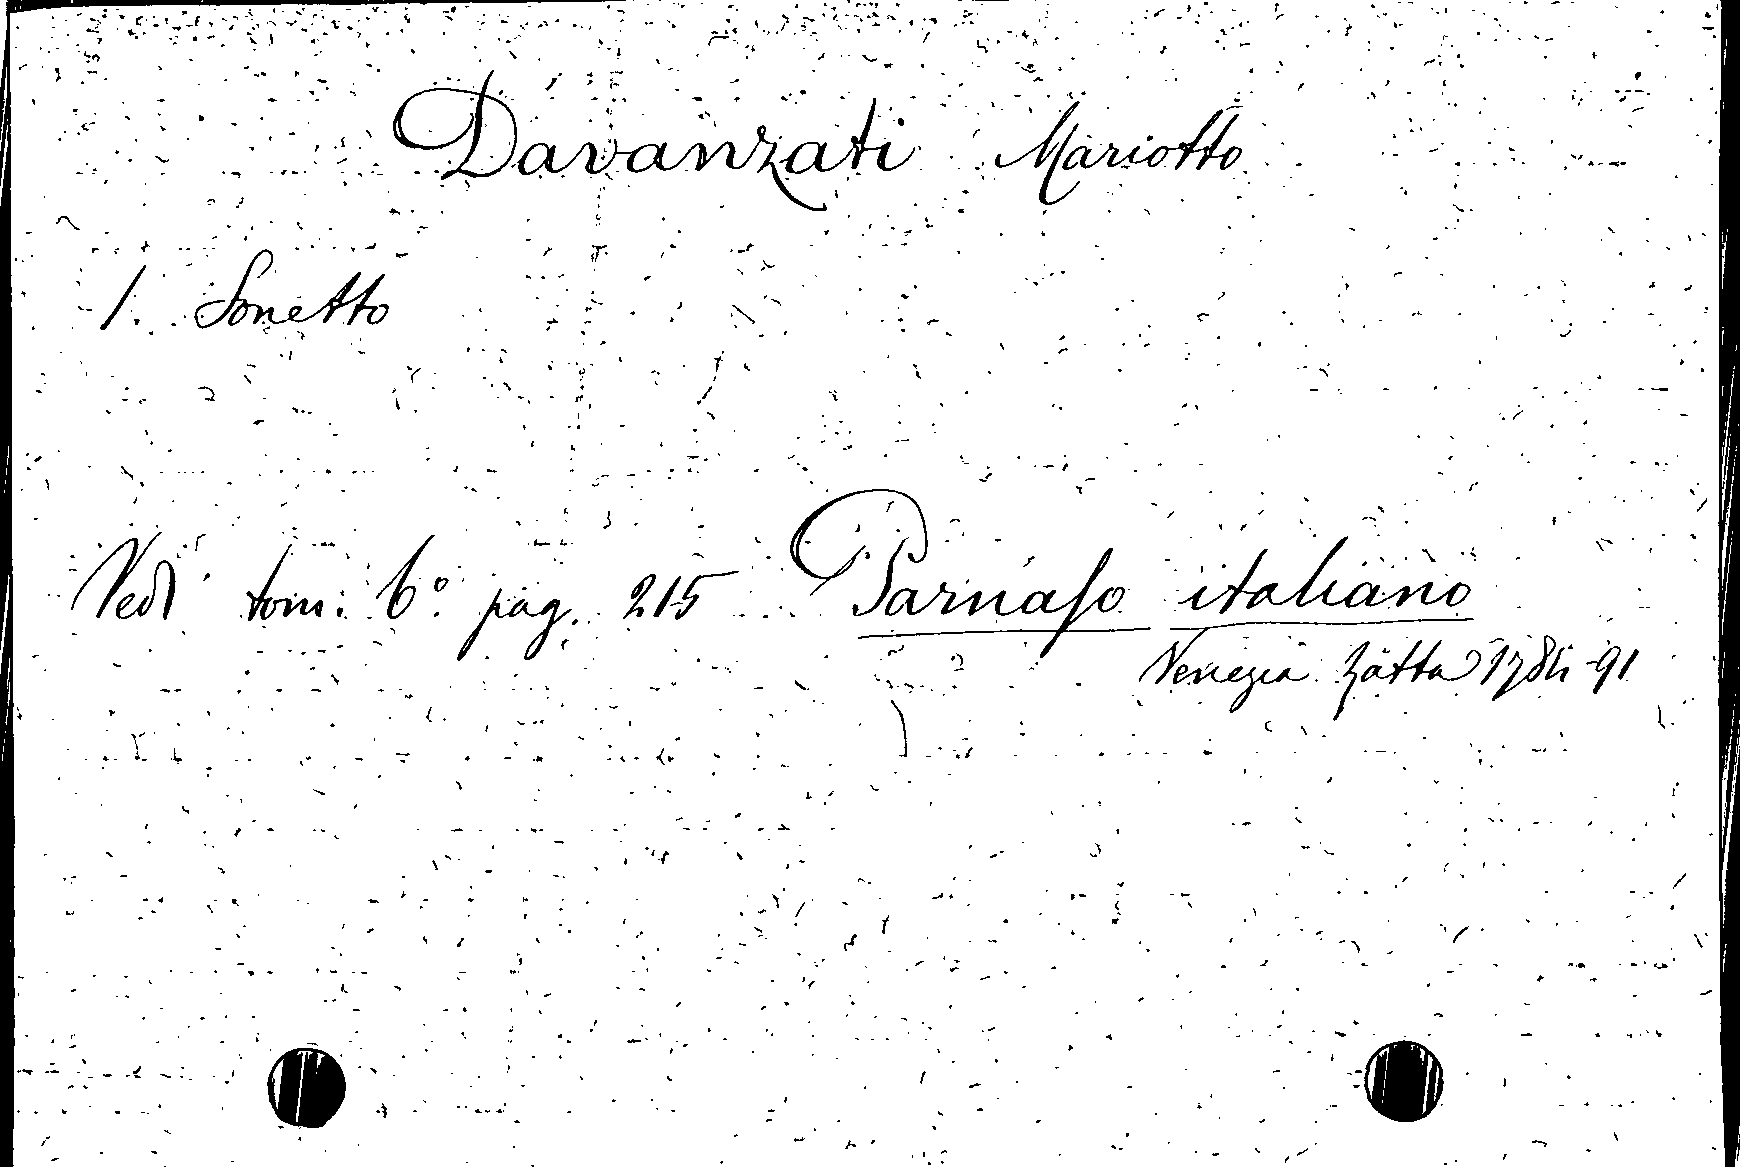 Davanzati Mariotto
1. Sonetto
Vedi tom: 6º pag. 215 Parnaso italiano
Venezia Zatta 1784-91